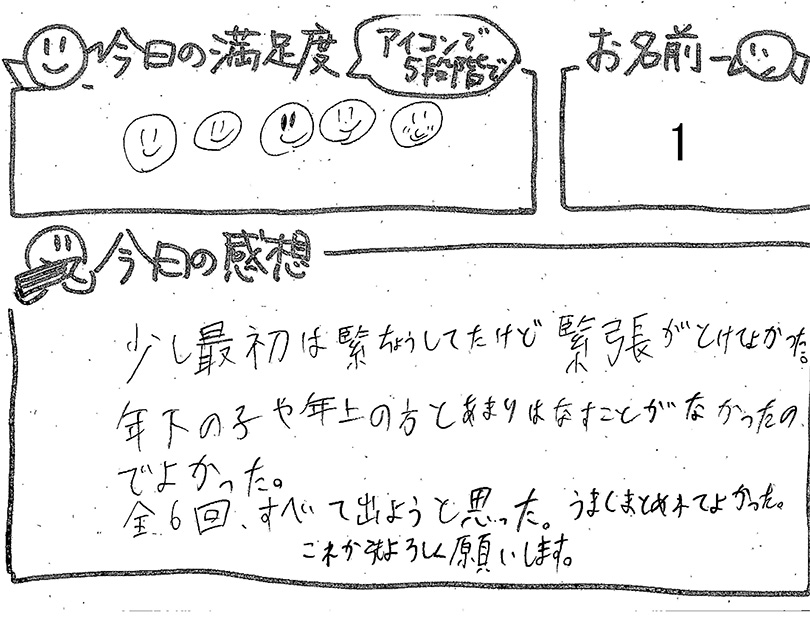 今日の満足度
アイコンで
5段階で
お名前
1
今日の感想
少し最初は緊ちょうしてたけど緊張がとけてよかった。
年下の子や年上の方とあまりはなすことがなかったの
でよかった。
全6回、すべて出ようと思った。うまくまとめれてよかった。
これからもよろしく願いします。